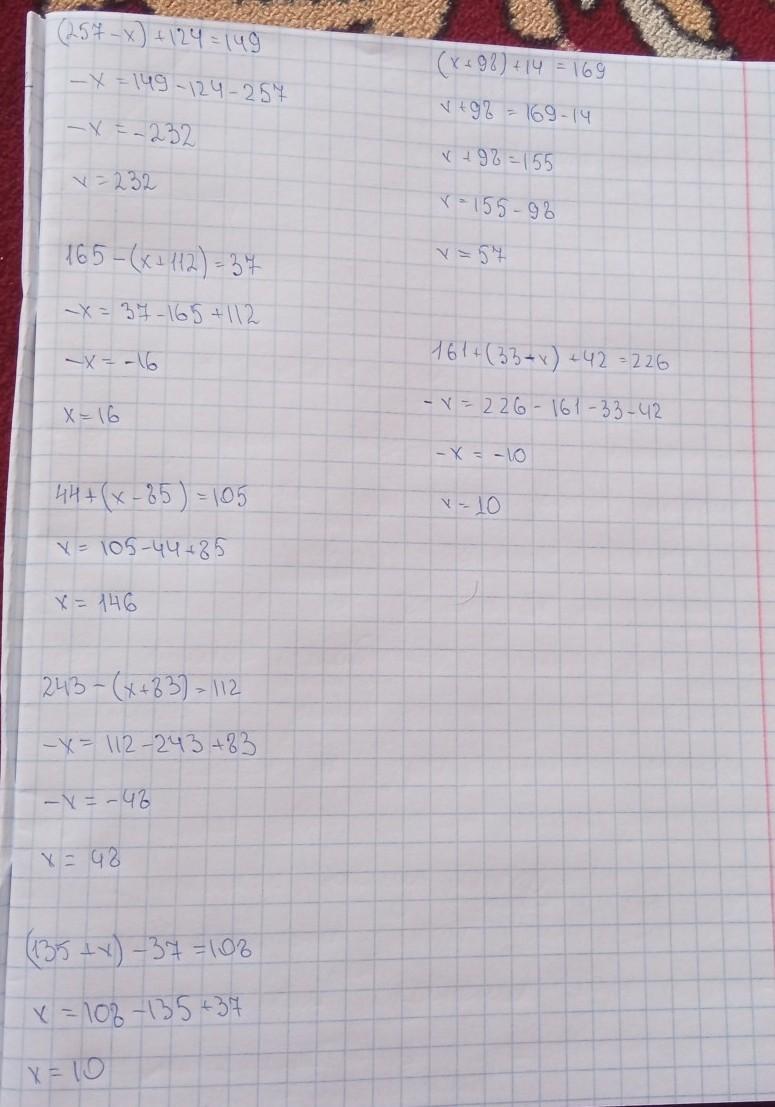 (257-x)+124=149
-x=149-124-257
-x=-232
x=232
165-(x+112)=37
-x=37-165+112
-x=-16
x=16
44+(x-85)=105
x=105-44+85
x=146
243-(x+83)=112
-x=112-243+83
-x=-48
x=48
(135+x)-37=108
x=108-135+37
x=10
(x+98)+14=169
x+98=169-14
x+98=155
x=155-98
x=57
161+(33-x)+42=226
-x=226-161-33-42
-x=-10
x=10